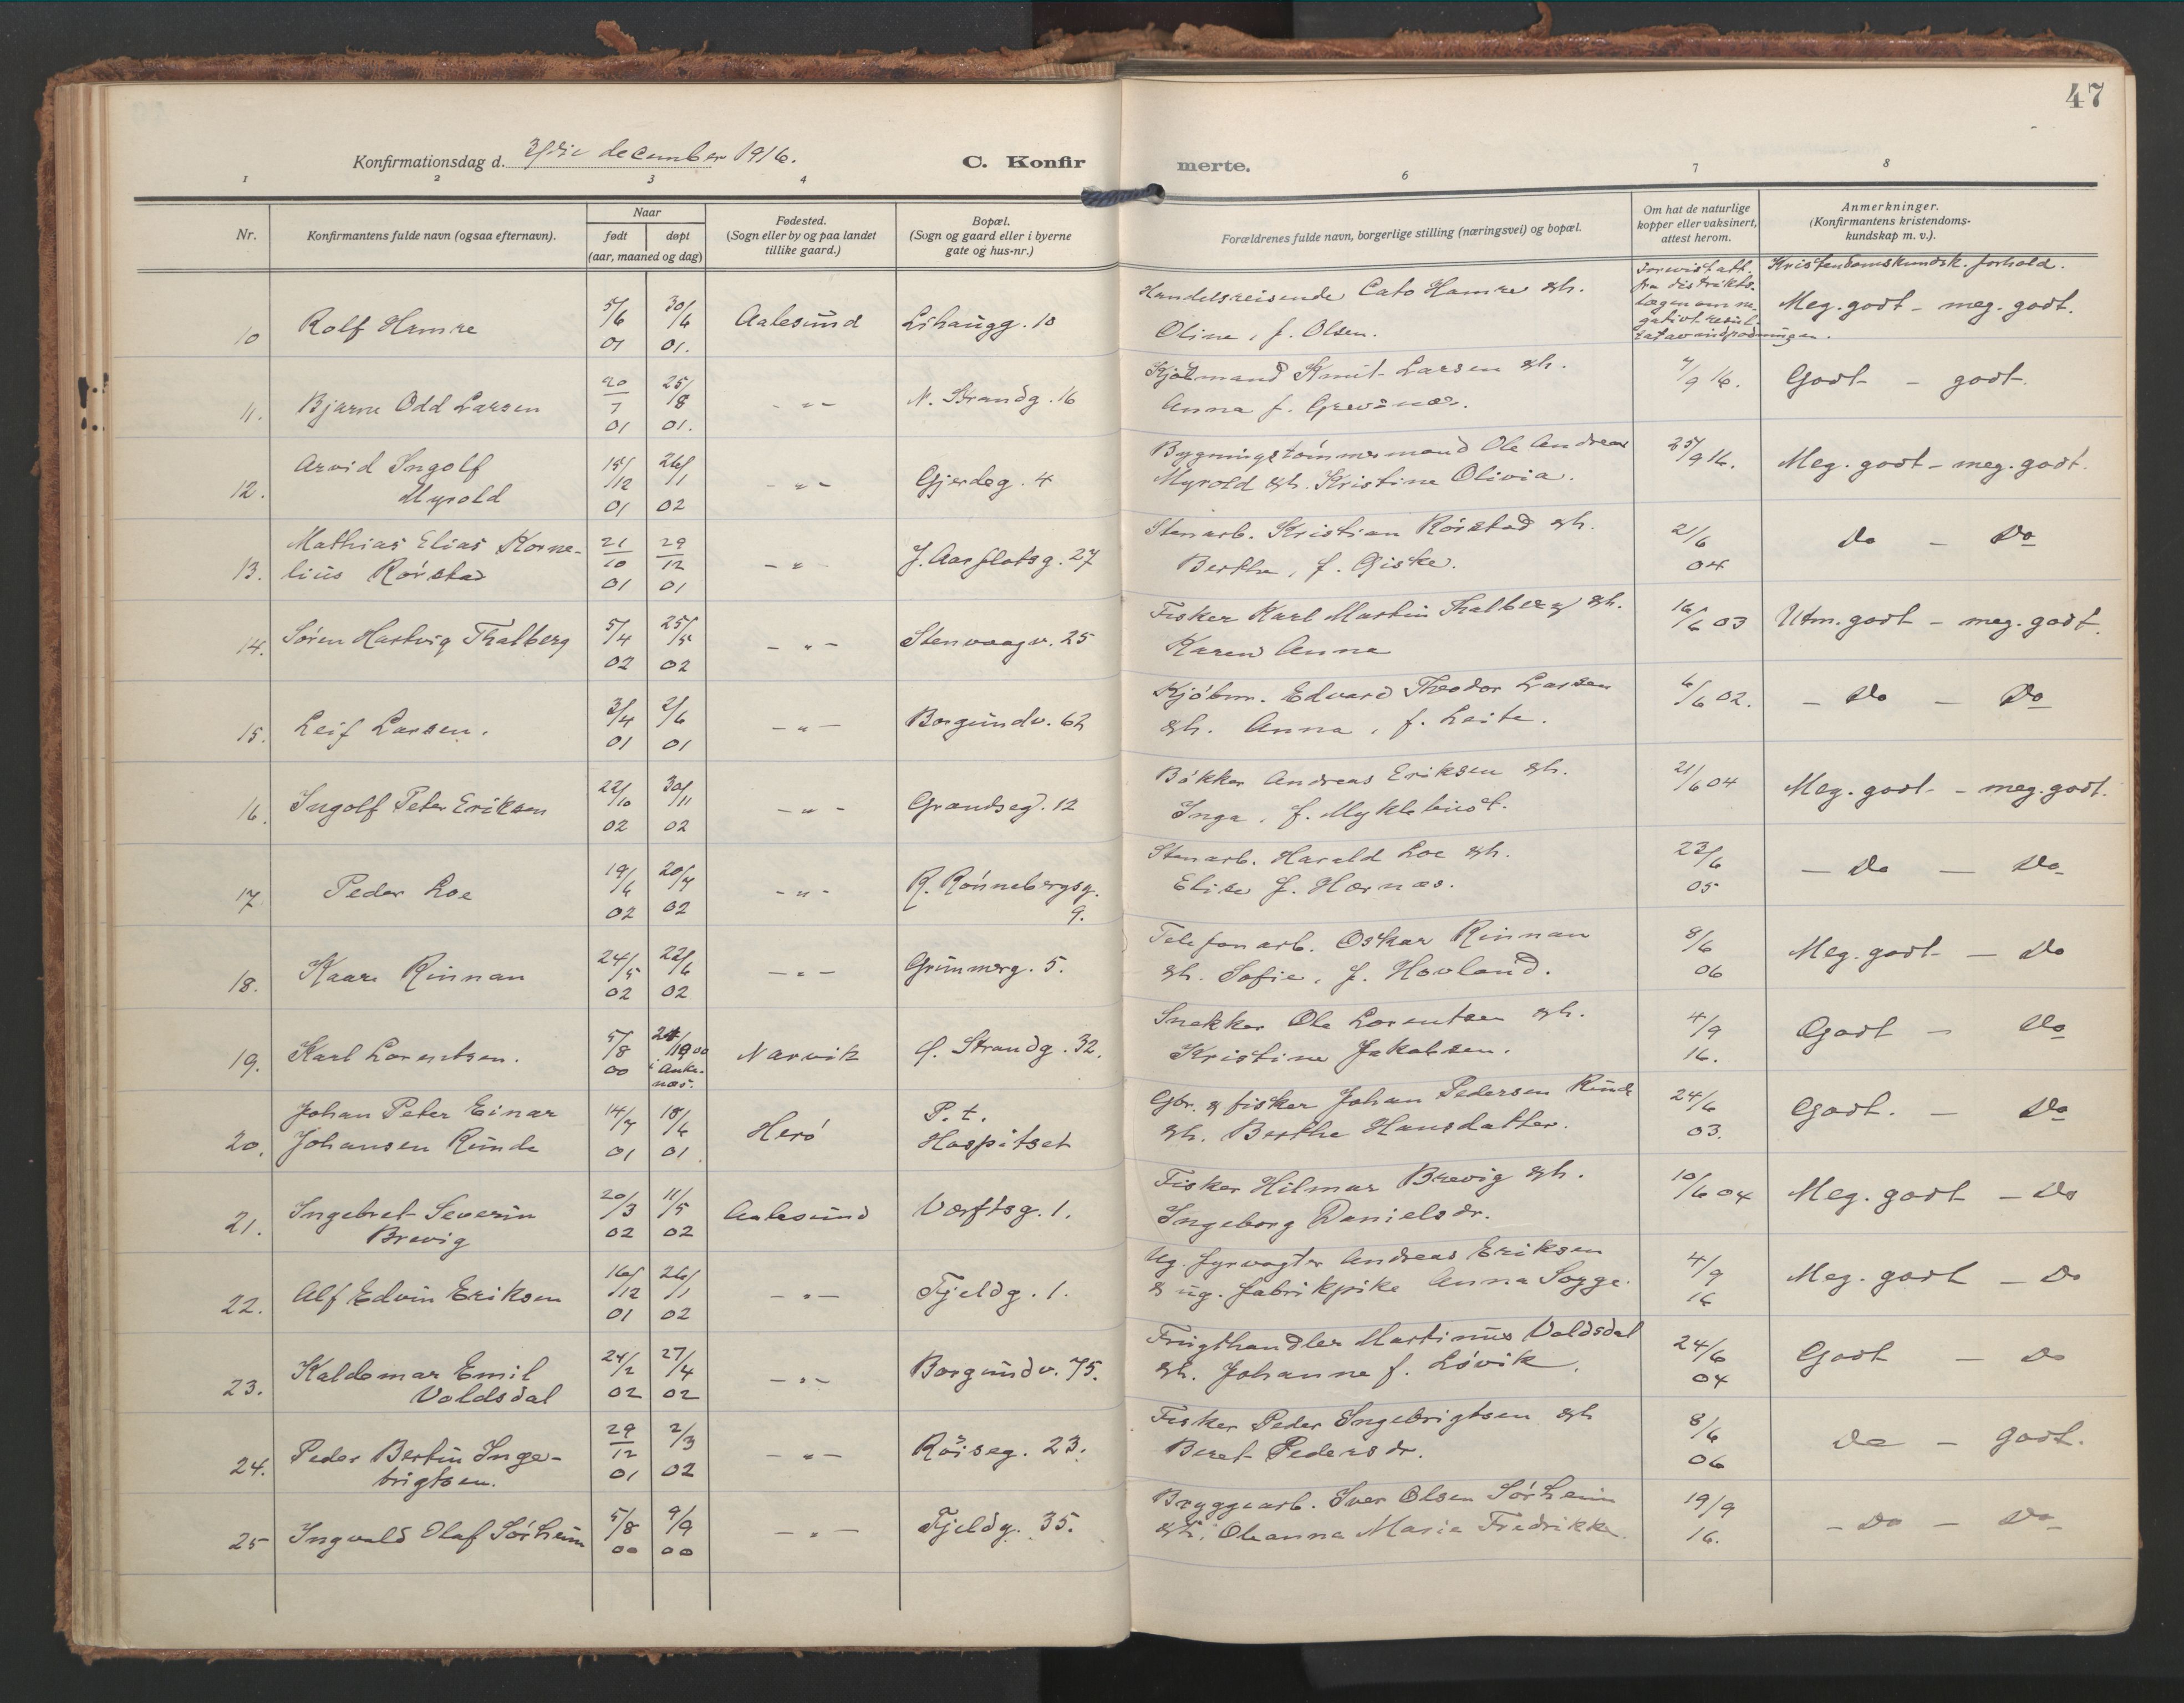 47
Konfirmationsdag d. december 1916. C. Konfir merte.
1 2 3 4 6 7 8
Nr.
Konfirmantens fulde navn (ogsaa efternavn).
Naar
født døpt
(aar, maaned og dag)
Fødested.
(Sogn eller by og paa landet
tillike gaard.)
Bopæl.
(Sogn og gaard eller i byerne
gate og hus-nr.)
Forældrenes fulde navn, borgerlige stilling (næringsvei) og bopæl.
Om hat de naturlige
kopper eller vaksinert,
attest herom.
Anmerkninger.
(Konfirmantens kristendoms-
kundskap m. v.).
Kristendomskundsk. forhold.
10 Rolf Hamre 5/6 01 30/6 01. Aalesund Lihaugg. 10
Handelsreisende Cato Hamre &h.
Oline, f. Olsen.
Forevist att.
fra distrikts-
lægen om ne-
gativt resul-
tat av indpodningen.
Meg. godt - meg. godt.
11. Bjarne Odd Larsen 20/7 01 25/8 01. - " - N. Strandg. 16
Kjøbmand Knut Larsen &h.
Anna f. Grevsnæs.
4/9 16. Godt - godt.
12. Arvid Ingolf
Myrold 15/12 01 26/1 02 - " - Gjerdeg. 4
Bygningstømmermand Ole Andreas
Myrold &h. Kristine Olivia.
25/9 16. Meg. godt - meg. godt.
13. Mathias Elias Korne-
lius Rørstad 21/10 01 29/12 01 - " - J. Aarflotsg. 27
Stenarb. Kristian Rørstad &h.
Berthe, f. Giske.
21/6 04 Do - Do
14. Søren Hartvig Thalberg 5/4 02 25/5 02 - " - Stenvaagv. 25
Fisker Karl Martin Thalberg &h.
Karen Anna
16/6 03 Utm. godt - meg. godt.
15. Leif Larsen. 3/4 01 2/6 01 - " - Borgundv. 62
Kjøbm. Edvard Theodor Larsen
&h. Anna, f. Leite.
6/6 02. - Do - Do
16. Ingolf Peter Eriksen 22/10 02 30/11 02 - " - Grændseg. 12
Bøkker Andreas Eriksen &h.
Inga, f. Myklebust.
21/6 04 Meg. godt - meg. godt.
17 Peder Loe 19/6 02 20/7 02 - " - R. Rønnebergsg.
9.
Stenarb. Harald Loe &h.
Elise f. Hærnæs.
23/6 05 - Do - Do
18. Kaare Rinnan 24/5 02 22/6 02 - " - Grimmerg. 5.
Telefonarb. Oskar Rinnan
&h. Sofie, f. Hovland.
8/6 06 Meg. godt - Do
19. Karl Lorentsen. 5/8 00 i Anke-
næs. Narvik Ø. Strandg. 32.
Snekker Ole Lorentsen &h.
Kristine Jakobsen.
4/9 16. Godt - Do
20. Johan Peter Einar
Johansen Runde 14/4 01 18/6 01. Herø P. t.
Hospitset
Gbr. & fisker Johan Pedersen Runde
&h. Berthe Hansdatter.
24/6 03. Godt. - Do
21. Ingebret Severin
Brevig 20/3 02 11/5 02 Aalesund Værftsg. 1.
Fisker Hilmar Brevig &h.
Ingeborg Danielsdr.
10/6 04 Meg. godt - Do
22. Alf Edvin Eriksen 16/12 01 26/1 02 - " - Fjeldg. 1.
Ug. fyrvogter Andreas Eriksen
& ug. fabrikpike Anna Sogge.
4/9 16 Meg. godt - Do
23. Kaldemar Emil
Voldsdal 24/2 02 27/4 02 - " - Borgundv. 75.
Frugthandler Martinus Voldsdal
&h. Johanne f. Løvik.
24/6 04 Godt - Do
24. Peder Bertin Inge-
brigtsen. 29/12 01 2/3 02 - " - Røiseg. 23.
Fisker Peder Ingebrigtsen &h
Beret Pedersdr.
8/6 06 Do - godt.
25 Ingvald Olaf Sørheim 5/8 00 9/9 00 - " - Fjeldg. 35.
Bryggearb. Iver Olsen Sørheim
&h. Oleanna Marie Fredrikke.
19/9 16. - Do - Do